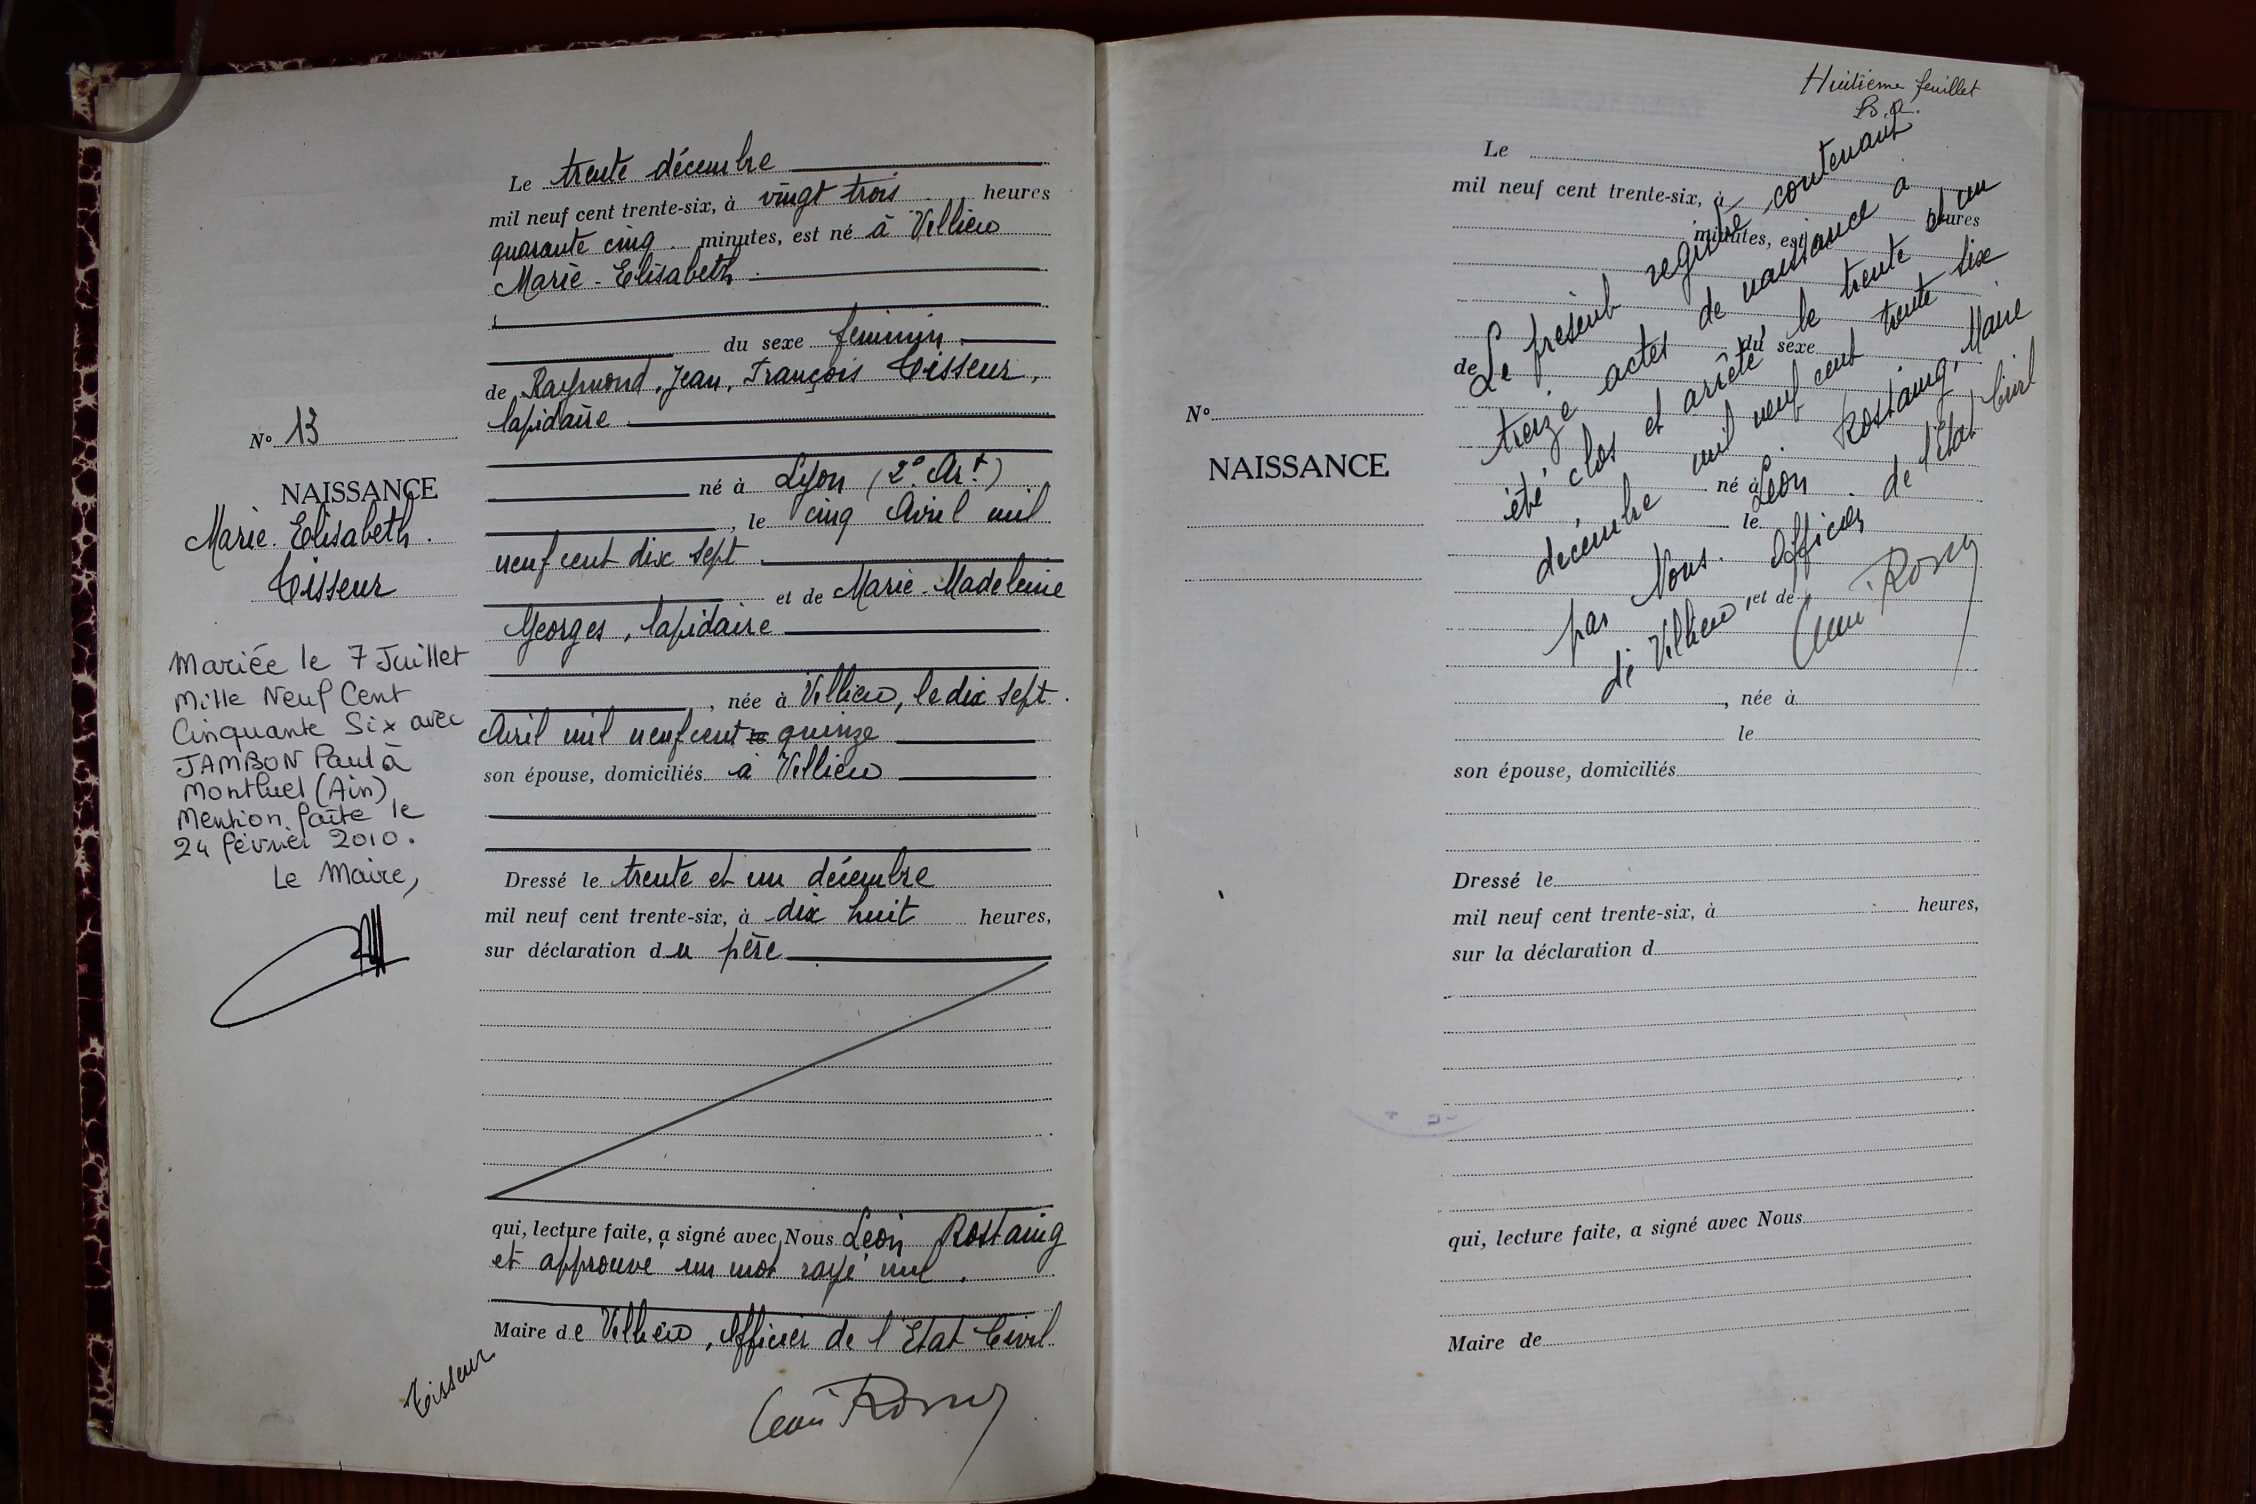 Le trente décembre
mil neuf cent trente-six, à vingt trois heures
quarante cinq minutes, est né à Villieu
Marie-Elisabeth
du sexe féminin
de Raymond, Jean, François Tisseur,
lapidaire
né à Lyon (2e Art)
, le cinq Avril mil
neuf cent dix sept
et de Marie-Madeleine
Georges, lapidaire
, née à Villieu, le dix sept
Avril mil neuf cent quinze
son épouse, domiciliés à Villieu
Dressé le trente et un décembre
mil neuf cent trente-six, à dix huit heures,
sur déclaration du père
qui, lecture faite, a signé avec Nous Léon Rostaing
et approuvé un mot rayé nul.
Maire de Villieu, Officier de l'Etat Civil
Tisseur
No 13
NAISSANCE
Marie-Elisabeth
Tisseur
Mariée le 7 Juillet
Mille Neuf Cent
Cinquante Six avec
JAMBON Paul à
Montluel (Ain)
Mention faite le
24 février 2010.
Le Maire,
Huitième feuillet
No
NAISSANCE
Le
mil neuf cent trente-six, à heures
minutes, est
du sexe
de
né à
le
et de
, née à
le
son épouse, domiciliés
Dressé le
mil neuf cent trente-six, à heures,
sur la déclaration d
qui, lecture faite, a signé avec Nous
Maire de
Le présent registre contenant
treize actes de naissance a
été clos et arrêté le trente et un
décembre mil neuf cent trente six
par Nous. Léon Rostaing, Maire
de Villieu, Officier de l'Etat Civil